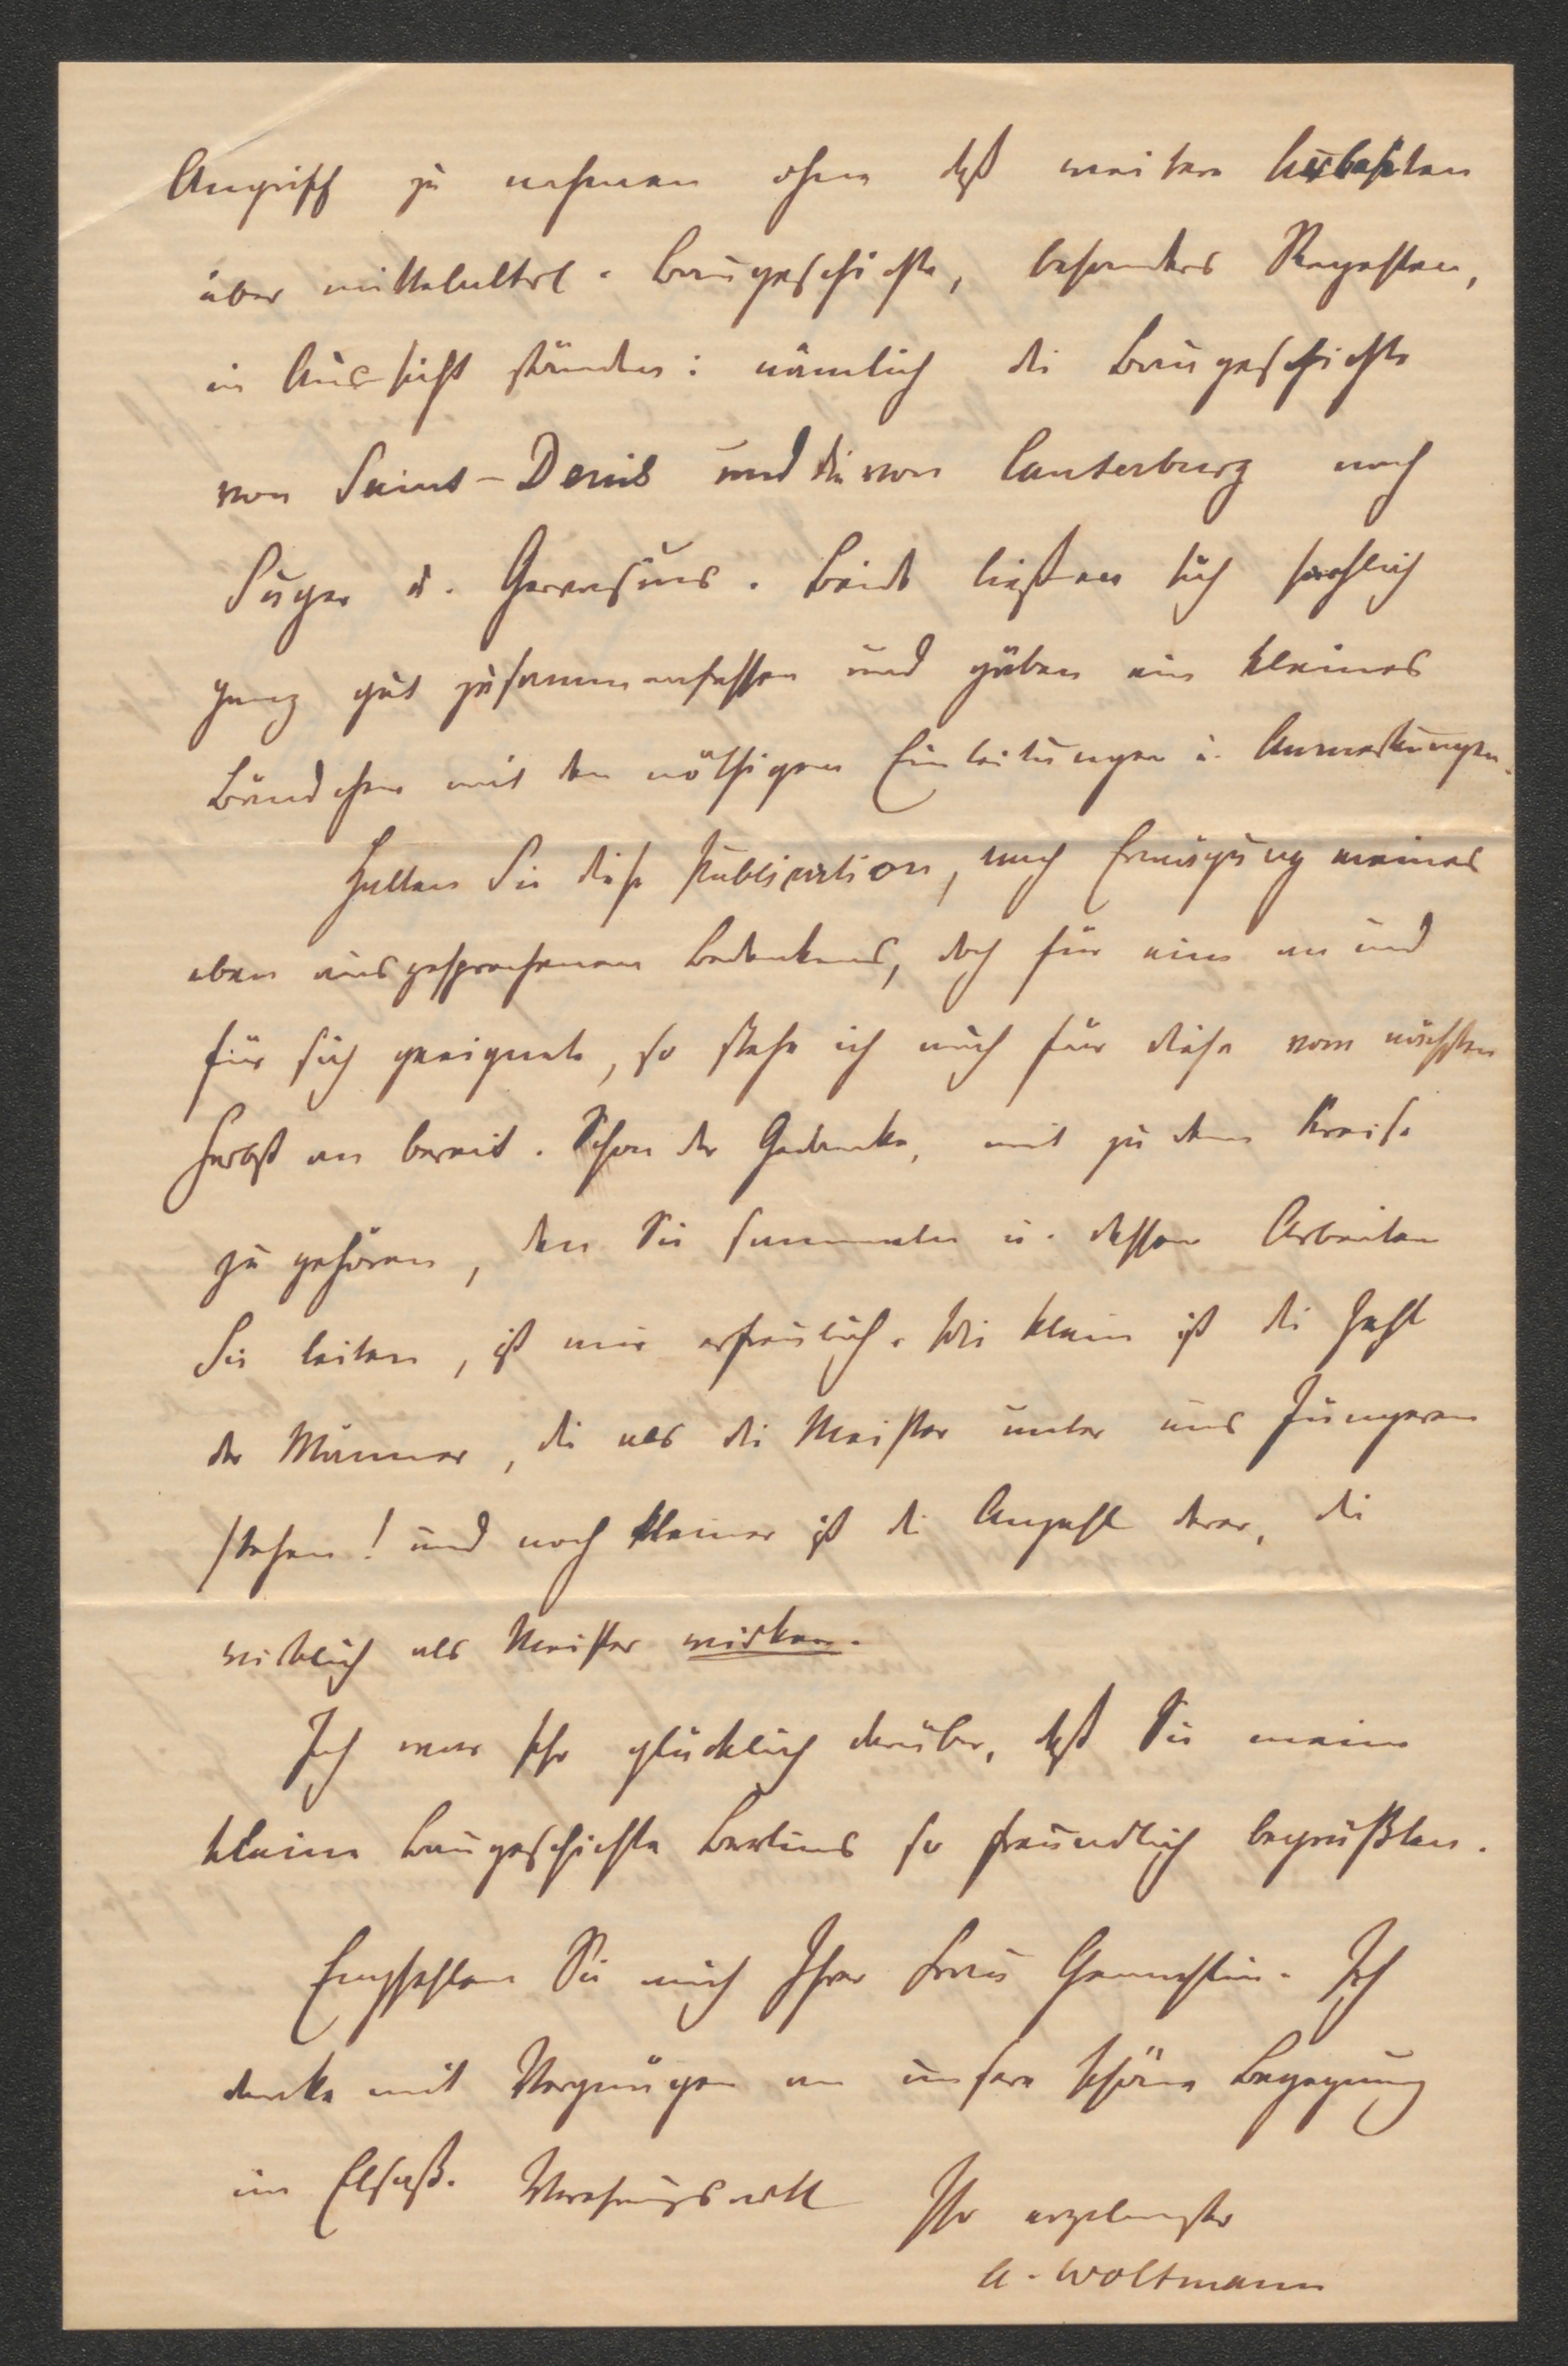 Angriff zu nehmen ohne daß weitere Arbeiten
über mittelaltrl. Baugeschichte, besonders Regesten,
in Aussicht ständen: nämlich die Baugeschichte
von Saint-Denis und die von Canterburg nach
Suger u. Gervasius. Beide ließen sich sachlich
ganz gut zusammenfassen und gäben ein kleines
Bändchen mit den nöthigen Einleitungen u. Anmerkungen.
Halten Sie diese Publication, nach Erwägung meines
eben ausgesprochenen Bedenkens, doch für eine an und
für sich geeignete, so stehe ich auch für diese vom nächsten
Herbst an bereit. Schon der Gedanke, mit zu dem Kreise
zu gehören, den Sie sammeln u. dessen Arbeiten
Sie leiten, ist mir erfreulich. Wie klein ist die Zahl
der Männer, die als die Meister unter uns Jüngeren
stehen! und noch kleiner ist die Anzahl derer, die
wirklich als Meister wirken.
Ich war sehr glücklich darüber, daß Sie meine
kleine Baugeschichte Berlins so freundlich begrüßten.
Empfehlen Sie mich Ihrer Frau Gemahlin. Ich
denke mit Vergnügen an unsere schöne Begegnung
im Elsaß. Verehrungsvoll Ihr ergebenster
A. Woltmann